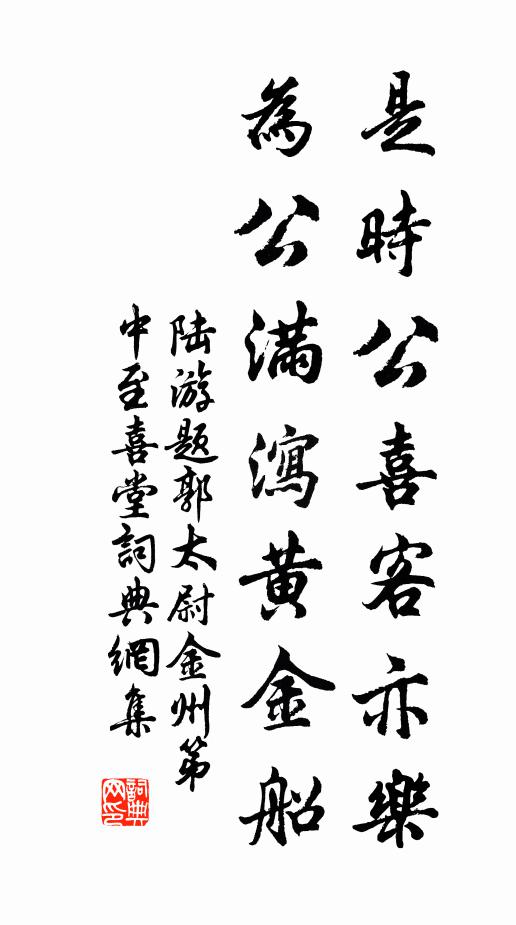 是時公喜客亦樂
為公滿瀉黃金船
陆游题郭太尉金州第
中至喜堂詞典網集
詞典网印